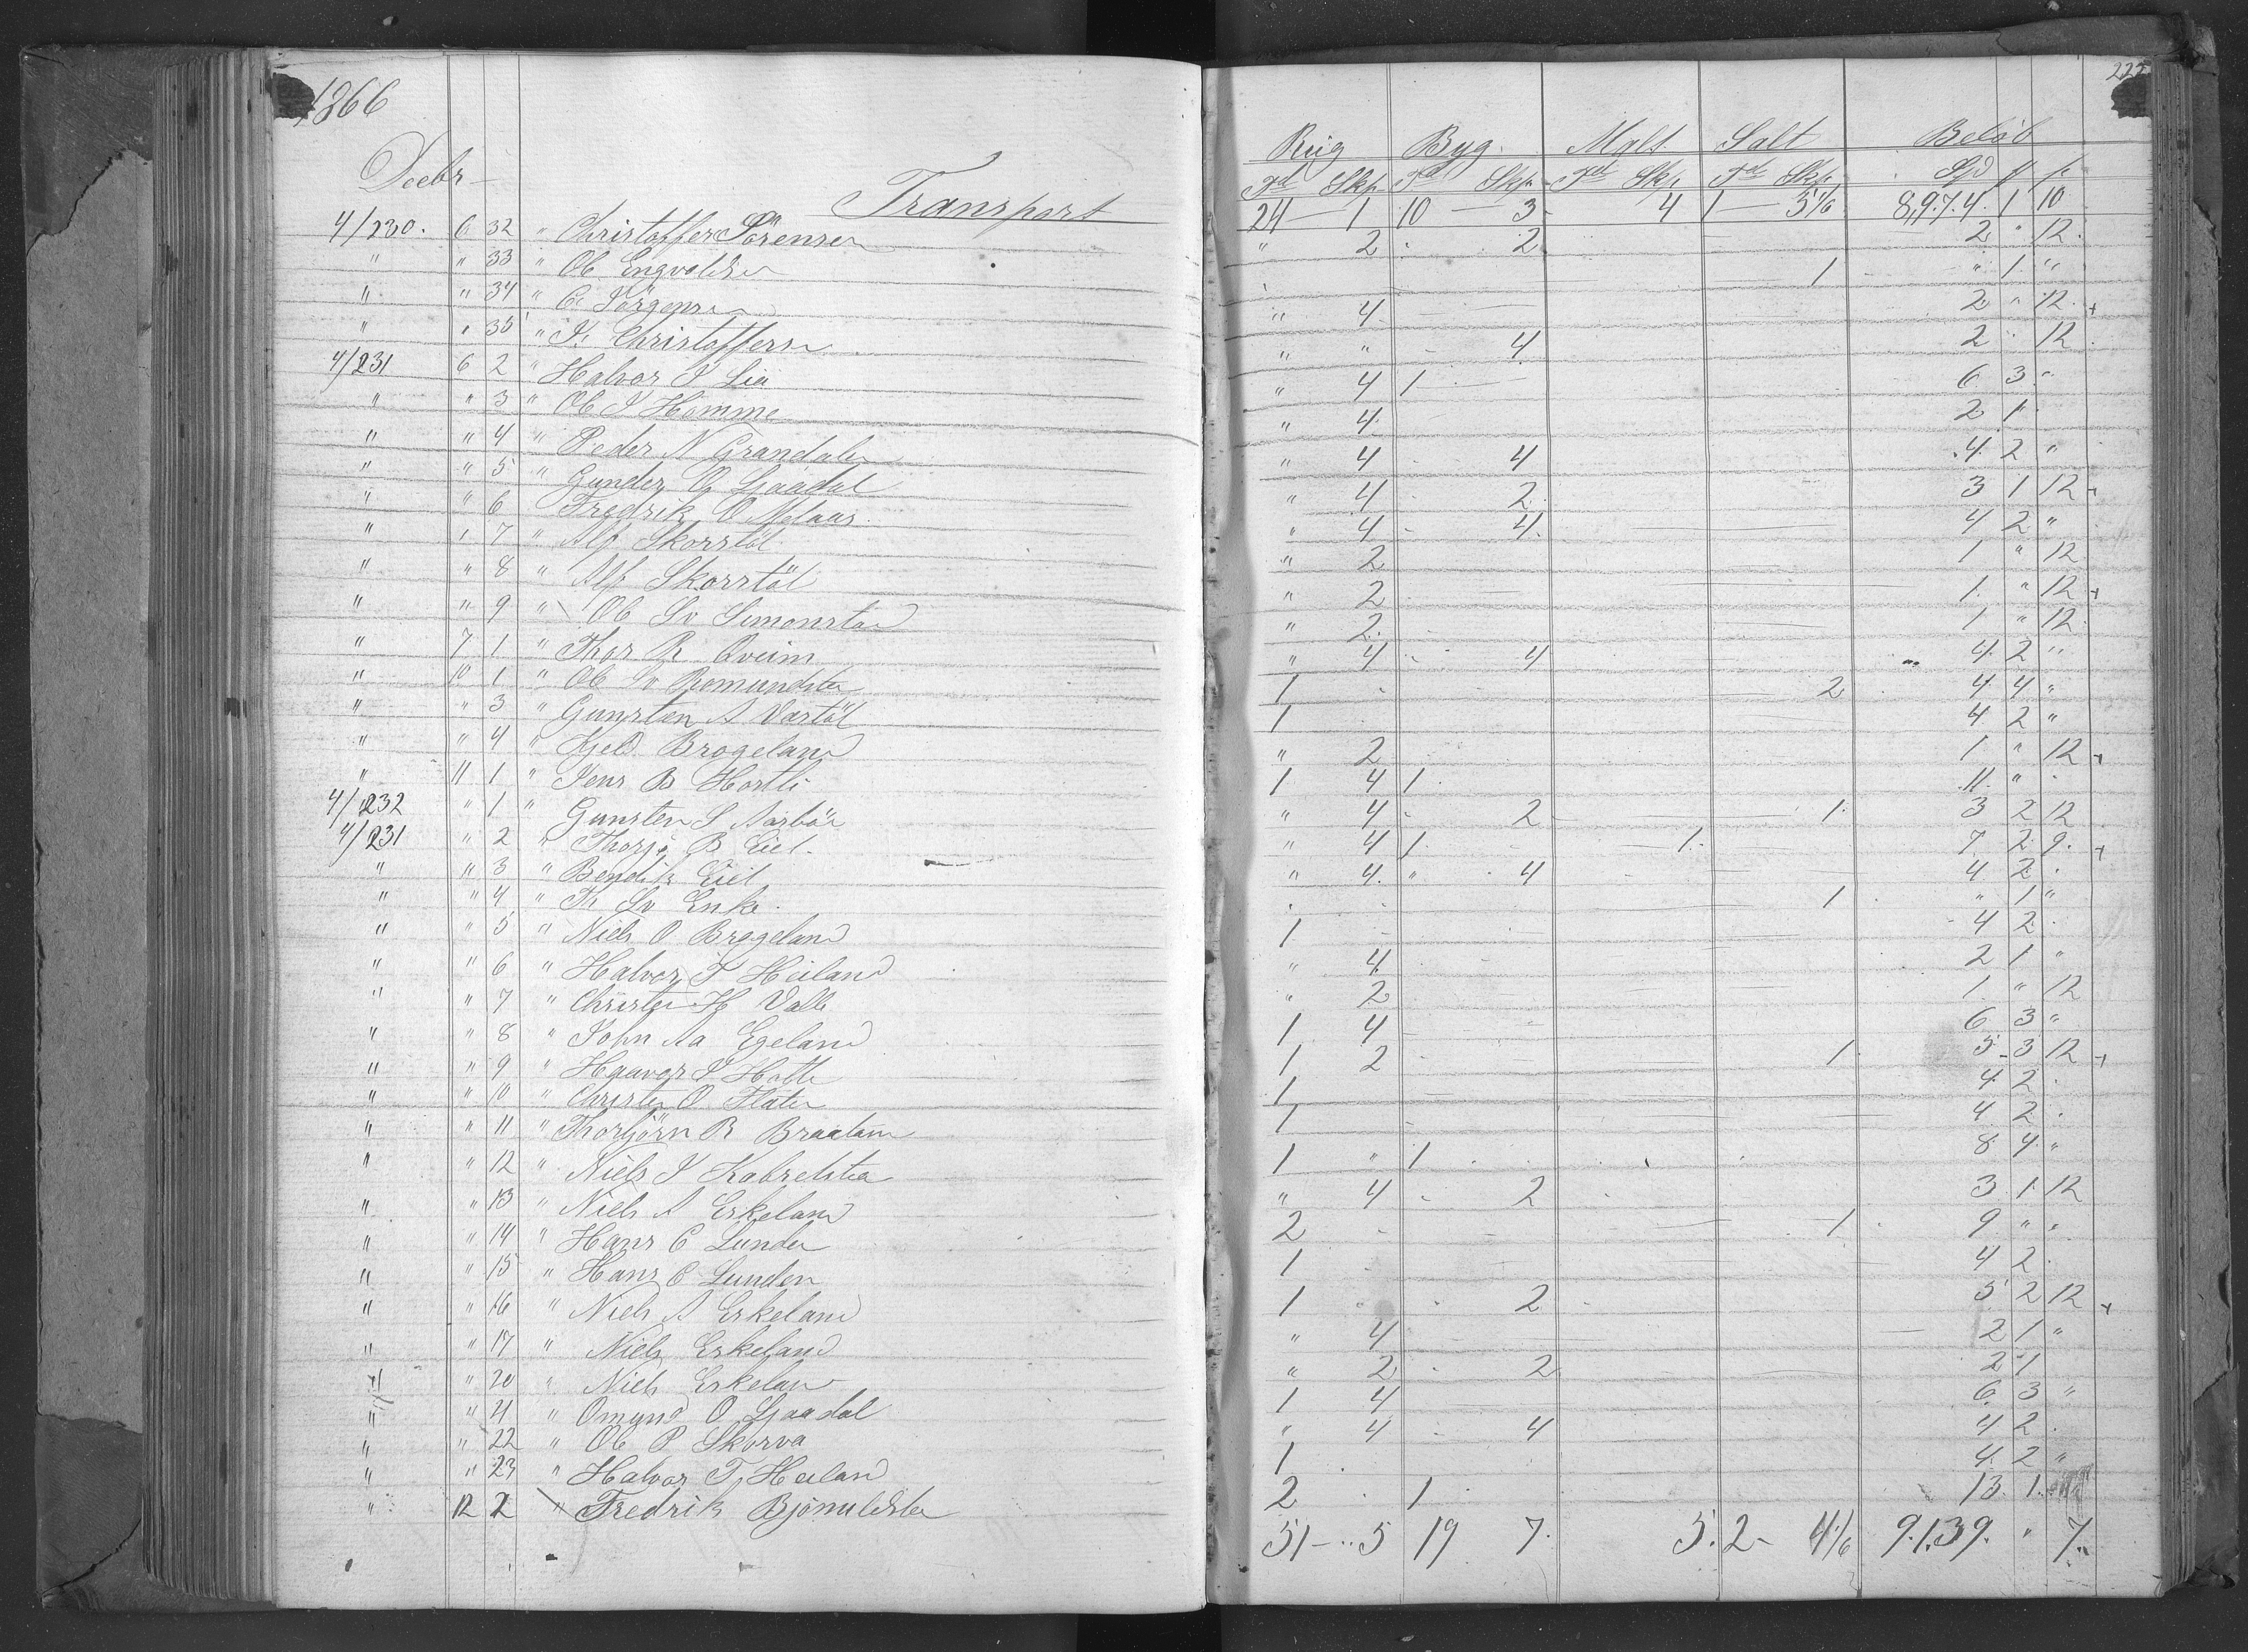 1866
222
Decbr
Rug Byg. Malt Salt Beløb
Td Skp Td Skp Td Skp Td Skp Spd
Transport 24 — 1 10 — 3 4 1 — 5 1/6 8,974. 1 10
4/230. 6 32 " Christoffer Sörensen " 2 2 2 " 12.
" " 33 " Ole Engvaldsen 1 " 1. "
" " 34 " C. Jörgensen " 4 2 " 12. +
" " 35 " K. Christoffersen " " 4 2 " 12.
4/231 6 2 " Halvor J Lia " 4 1 6 3 "
" " 3 " Ole J Homme " 4 2 1 "
" " 4 " Peder N Grandalen " 4 4 4 2 "
" " 5 " Gunder O Ljaadal " 4 2 3 1 12 +
" " 6 " Fredrik O Melaas " 4 4 4 2 "
" " 7 " Alf Skorstöl " 2 1 " 12
" " 8 " Alf Skorstöl " 2 1. " 12 +
" " 9 " Ole Sv Simonstad " 2. 1 " 12.
" 7 1 " Thor R Qveim " 4 4 4 2 "
" 10 1 " Ole Sv Romundstad 1 2 4 4 "
" " 3 " Gunsten A Vastöl 1 4 2 "
" " 4 " Kjeld Brogeland " 2 1 " 12 +
" 11 1 " Jens B Hortli 1 4 1 11. "
4/232 " 1 " Gunsten S Aasböe " 4 2 1 3 2 12
4/231 " 2 " Thorje B Eiel " 4 1 1 7 2 9 +
" " 3 " Bendik Eiel " 4 " 4 4 2
" " 4 " Th Sv Enke 1 " 1 "
" " 5 " Niels O Brogeland 1 4 2
" " 6 " Halvor T Heiland " 4 2 1 "
" " 7 " Christen H Valle " 2 1 " 12
" " 8 " John Aa Egeland 1 4 6 3 "
" " 9 " Haavor J Hatte 1 2 1 5 3 12 +
" " 10 " Christen O Flaten 1 4 2
" " 11 " Thorbjörn R Braatane 1 4 2
" " 12 " Niels J Kabrelstea 1 " 1 8 4 "
" " 13 " Niels A Erkeland " 4 2 3 1 12
" " 14 " Hans C Lunden 2 1 9 " "
" " 15 " Hans C Lunden 1 4 2
" " 16 " Niels A Erkeland 1 2 5 2 12 +
" " 17 " Niels Erkeland " 4 2 1 "
" " 20 " Niels Erkeland " 2 2 2 1
" " 21 " Omund O Ljaadal 1 4 6 3 "
" " 22 " Ole P Skorva " 4 4 4 2
" " 23 " Halvor T Heiland 1 4 2 "
" 12 2 " Fredrik Bjönuldsten 2 1 13. 1.
51 — 5 19 7. 5. 2 - 4 1/6 9.139. " 7.